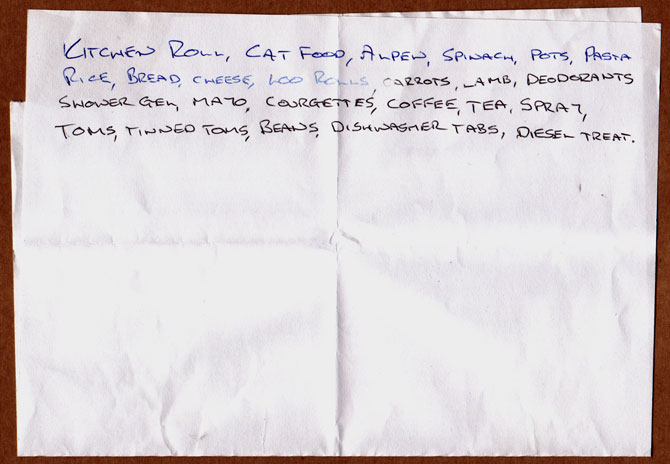 KITCHEN ROLL, CAT FOOD, ALPEN, SPINACH, POTS, PASTA
RICE, BREAD, CHEESE, LOO ROLLS, CARROTS, LAMB, DEODORANTS
SHOWER GEL, MAYO, COURGETTES, COFFEE, TEA, SPRAY,
TOMS, TINNED TOMS, BEANS, DISHWASHER TABS, DIESEL TREAT.